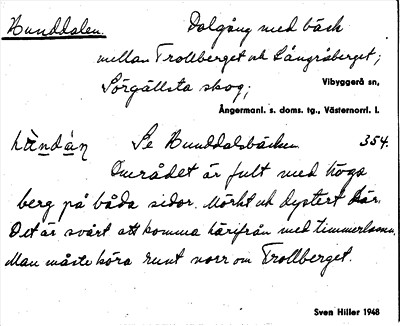 Hunddalen.
Dalgång med bäck
mellan Trollberget och Långråberget;
Sörgällsta skog;
Vibyggerå sn,
Ångermanl. s. doms. tg., Västernorrl. l.
hùndàn
Se Hunddalsbäcken
354.
Området är fult med höga
berg på båda sidor. Mörkt och dystert där.
Det är svårt att komma härifrån med timmerlassen.
Man måste köra runt norr om Trollberget.
Sven Hiller 1948